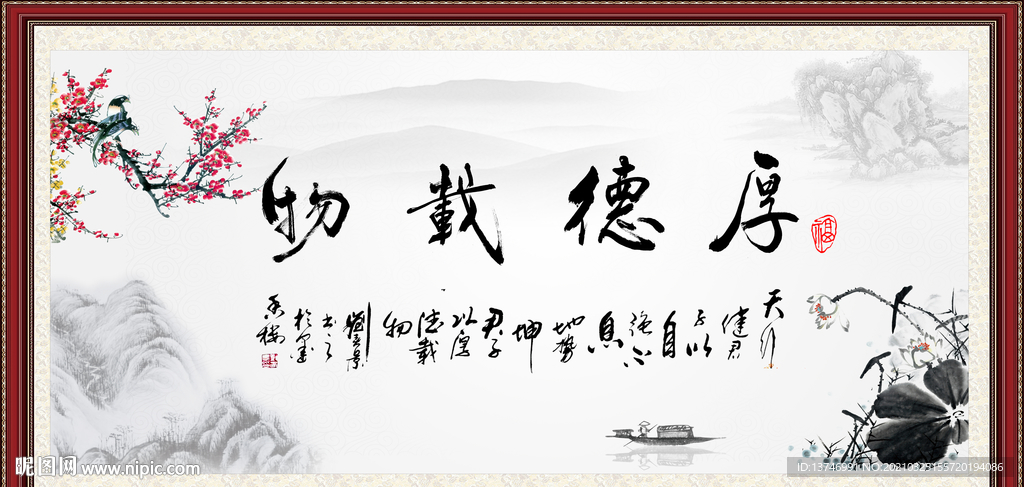 厚德载物
福
天行
健君
子以
自
强不
息
地势
坤
君子
以厚
德载
物
昵图网 www.nipic.com
ID:13746991 NO:20210325155720194086